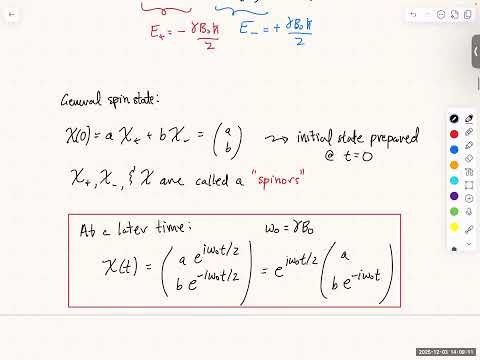 E₊ = - γB₀ħ/2   E₋ = + γB₀ħ/2
General spin state:
χ(0) = a χ₊ + b χ₋ = (a b) → initial state prepared
@ t=0
χ₊, χ₋, & χ are called a "spinors"
At a later time:   ω₀ = γB₀
χ(t) = (a e^{iω₀t/2} b e^{-iω₀t/2}) = e^{iω₀t/2} (a b e^{-iω₀t})
2025-12-03 14:09:11